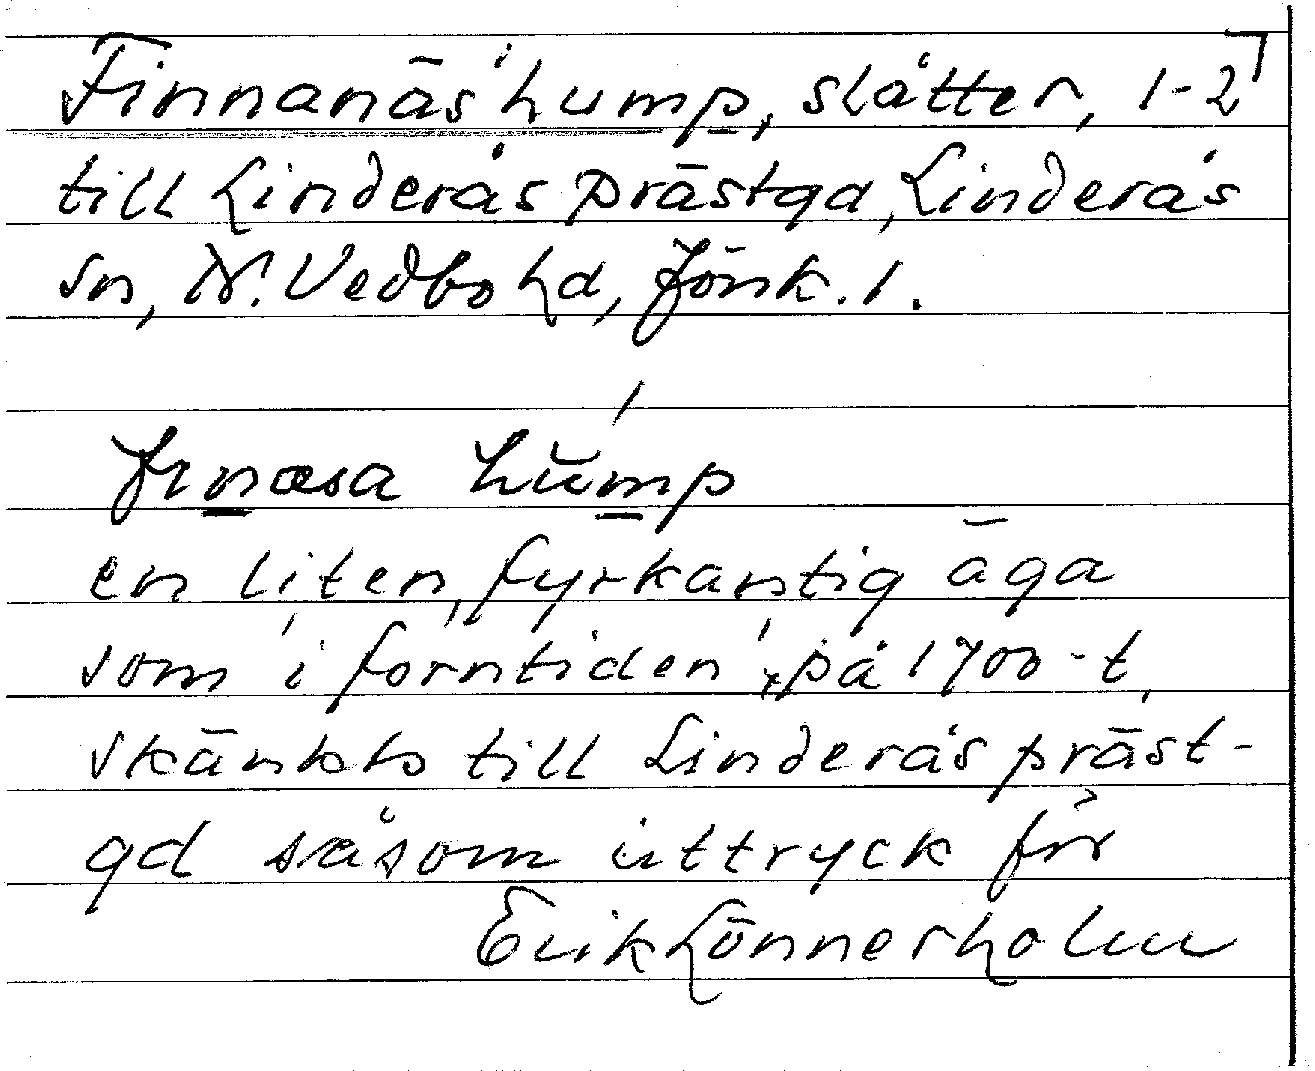 Finnanäs hump, slåtter, 1-2
till Linderås prästgd, Linderås
sn, N. Vedbo hd, Jönk. l.
finæsa hŭmp
en liten, fyrkantig äga
som 'i forntiden', på 1700-t,
skänkts till Linderås präst-
gd såsom uttryck för
Erik Lönnerholm